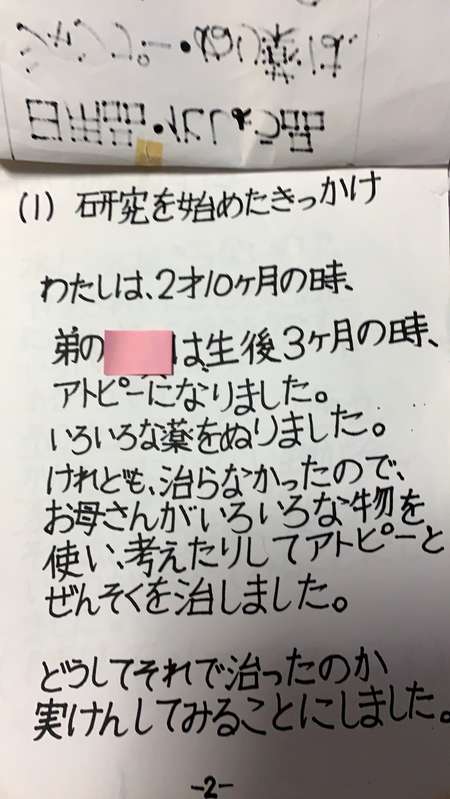 (1) 研究を始めたきっかけ
わたしは、2才10ヶ月の時、
弟の
は生後3ヶ月の時、
アトピーになりました。
いろいろな薬をぬりました。
けれども、治らなかったので、
お母さんがいろいろな物を
使い、考えたりしてアトピーと
ぜんそくを治しました。
どうしてそれで治ったのか
実けんしてみることにしました。
-2-